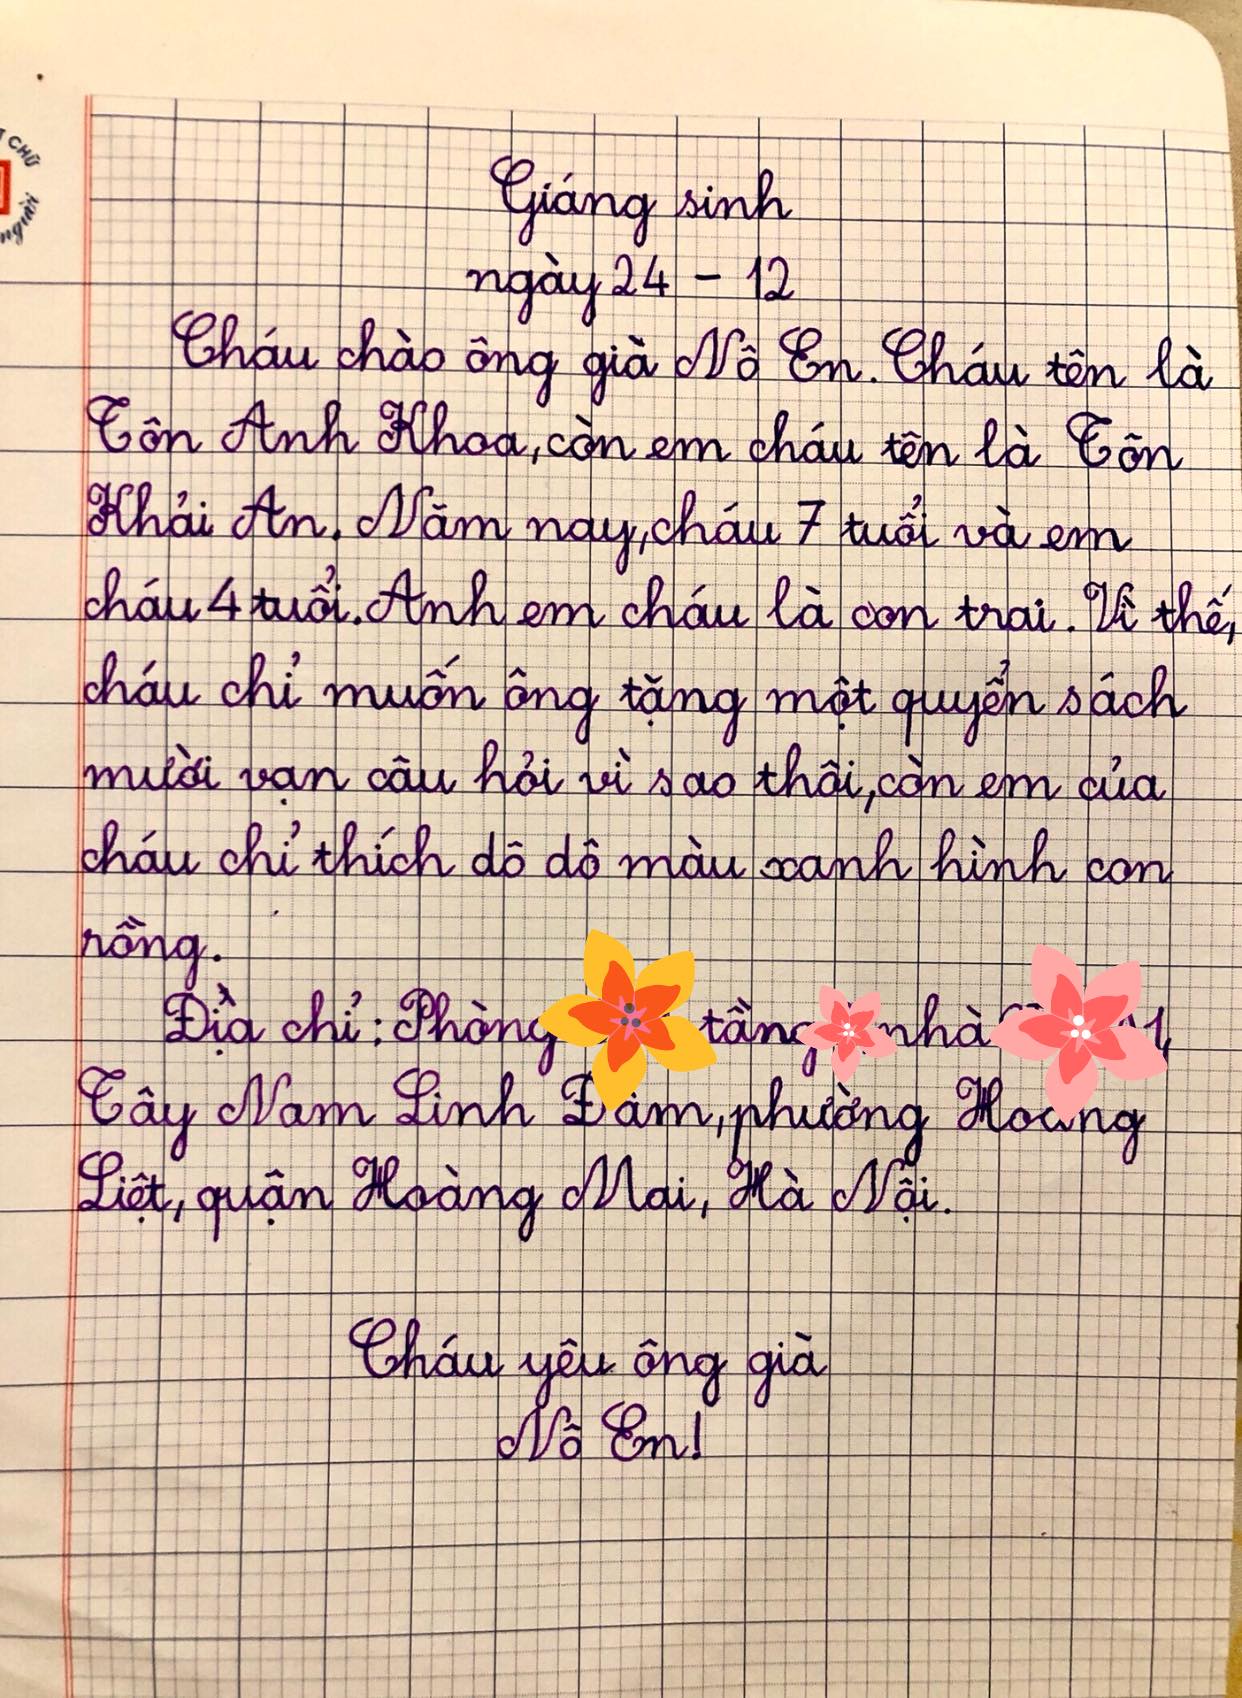 CHỮ
người
Giáng sinh
ngày 24 - 12
Cháu chào ông già Nô En. Cháu tên là
Tôn Anh Khoa, còn em cháu tên là Tôn
Khải An. Năm nay, cháu 7 tuổi và em
cháu 4 tuổi. Anh em cháu là con trai. Vì thế,
cháu chỉ muốn ông tặng một quyển sách
mười vạn câu hỏi vì sao thôi, còn em của
cháu chỉ thích dô dô màu xanh hình con
rồng.
Địa chỉ: Phòng tầng nhà
Tây Nam Linh Đàm, phường Hoàng
Liệt, quận Hoàng Mai, Hà Nội.
Cháu yêu ông già
Nô En!